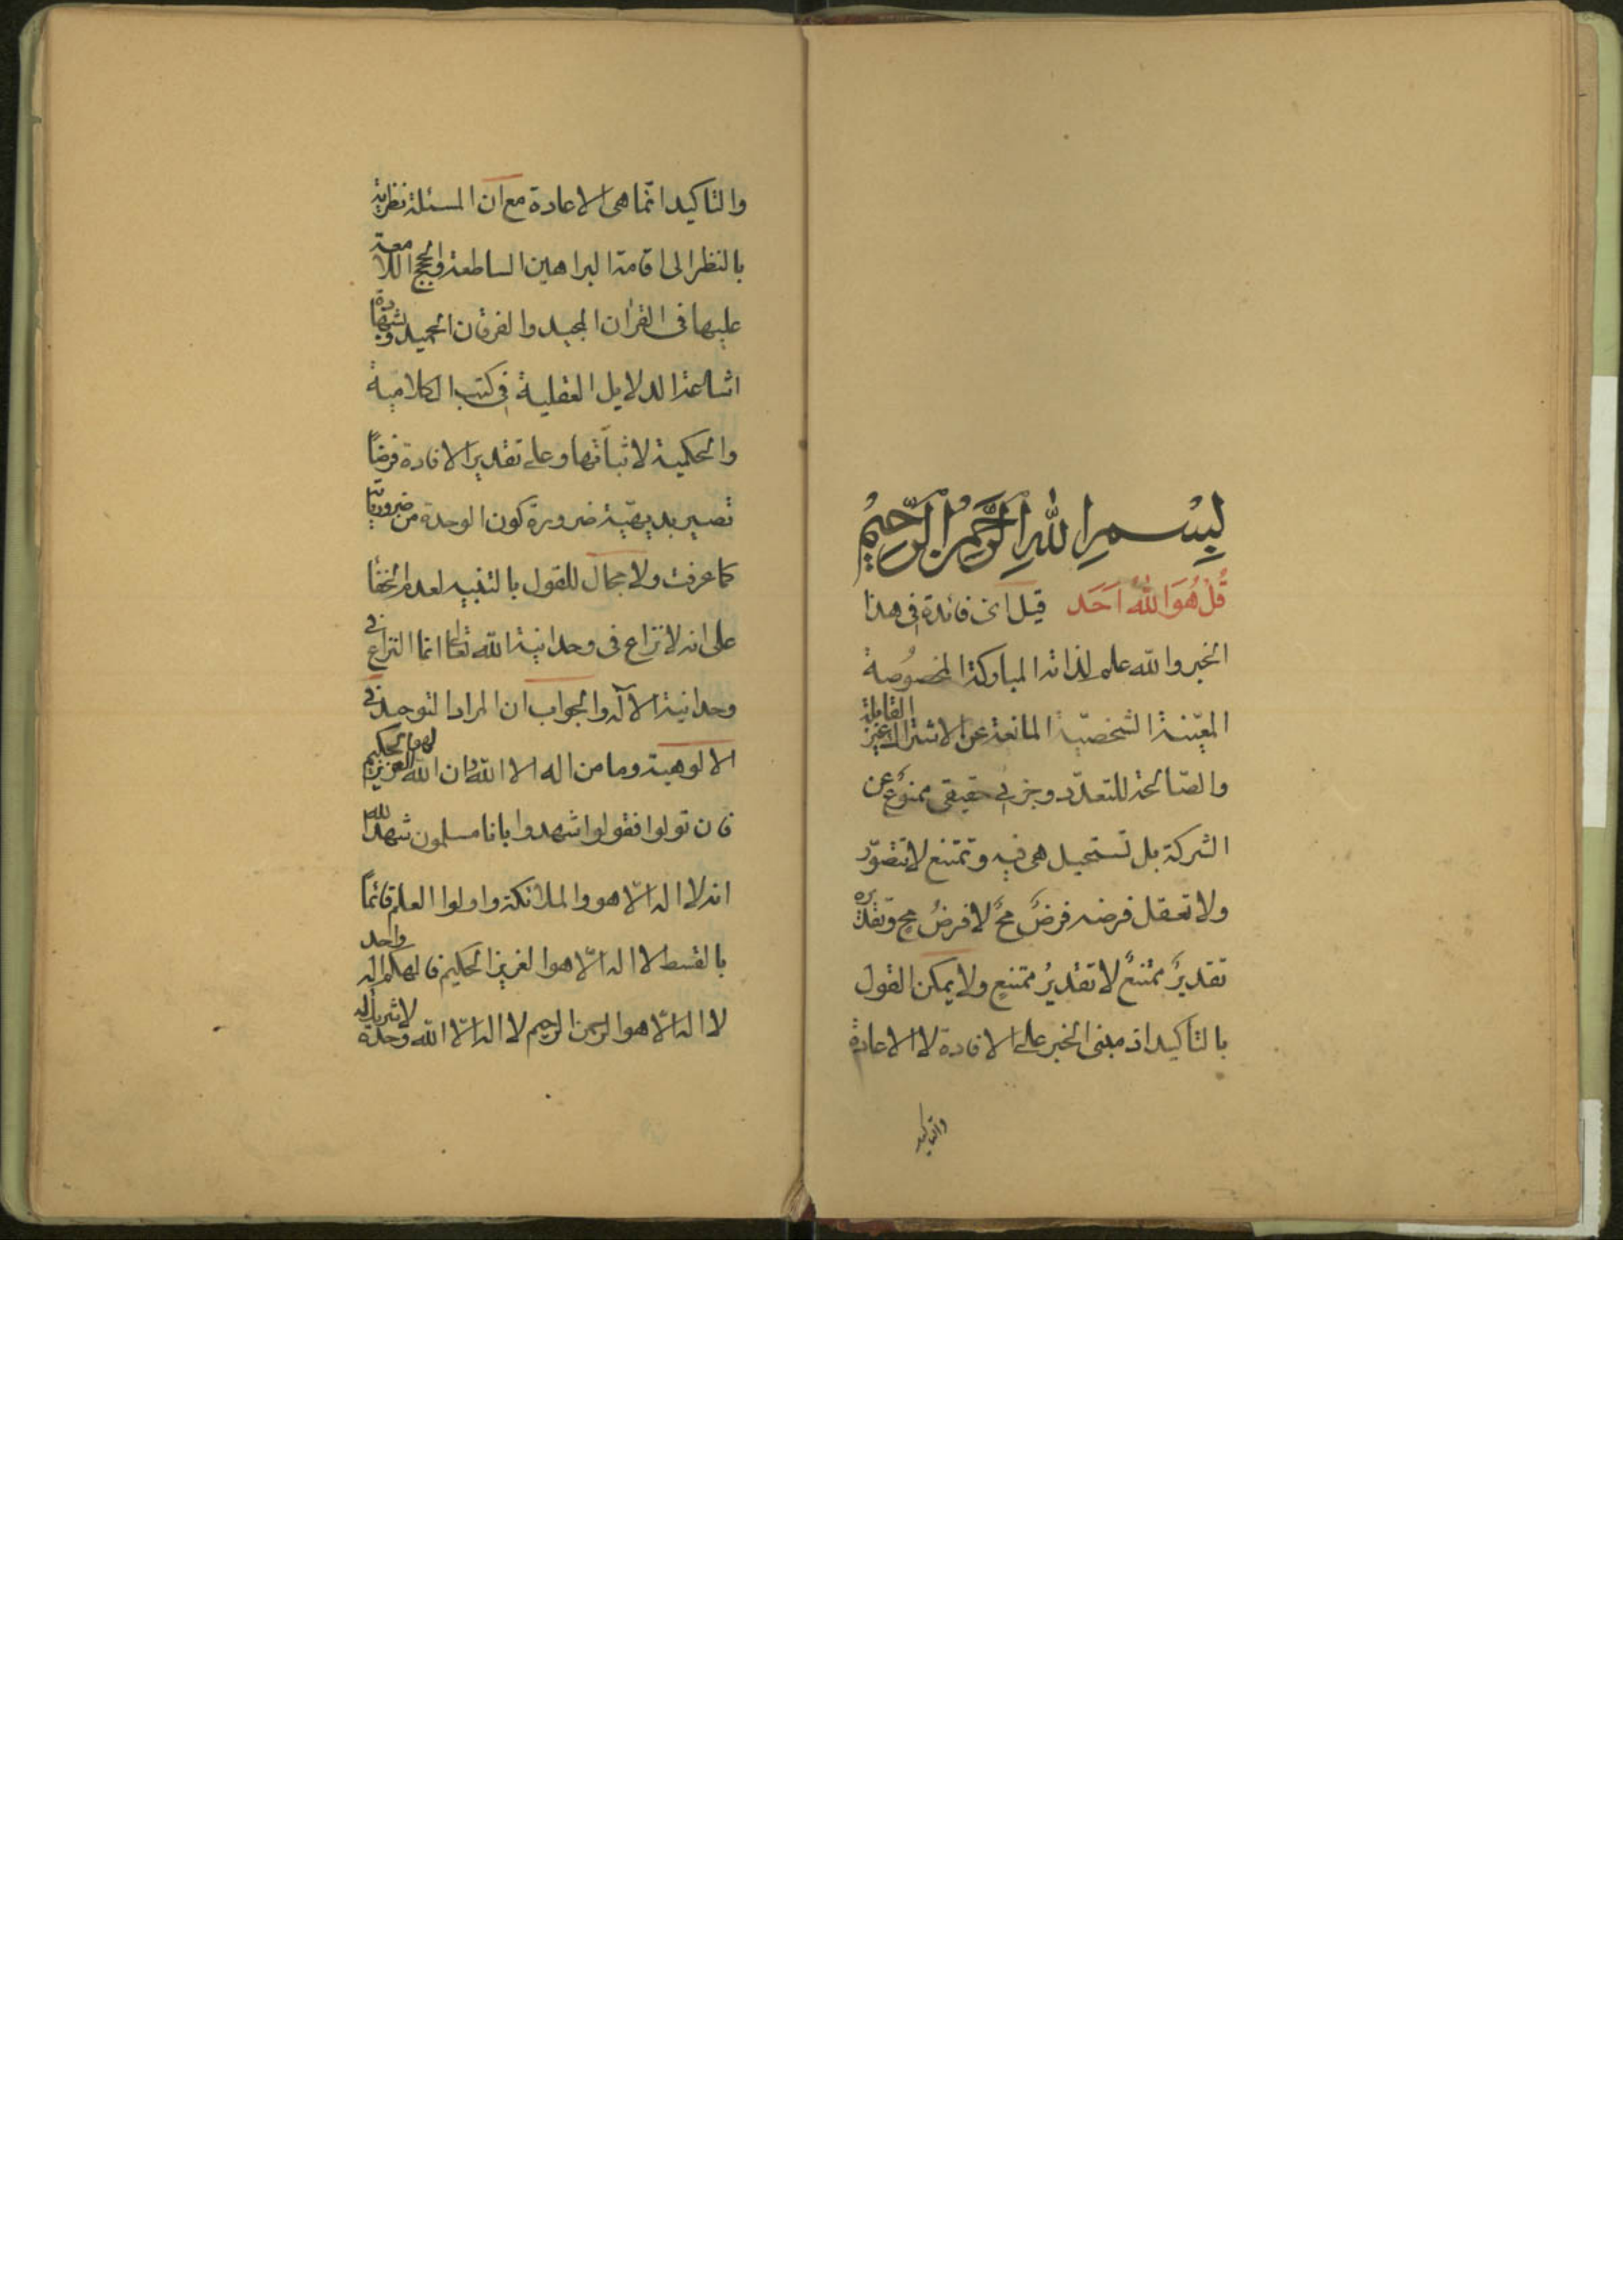 بِسْمِ اللهِ الرَّحْمنِ الرَّحِيمِ
قُلْ هُوَ اللّٰهُ اَحَد قيل اى فائدة فى هذا
الخبر والله علم لذاته المباركة المخصُوصة
المعيّنة الشخصيّة المانعة عن الاشتراك غير القابلة
والصّالحة للتعدّد وجزئى حقيقى ممنوع عن
الشركة بل تستحيل هى فيه وتمتنع لا تتصوّر
ولا تعقل فرضه فرضٌ مح لا فرضُ مح وتقديره
تقديرٌ ممتنعٌ لا تقديرُ ممتنعٍ ولا يمكن القول
بالتأكيد اذ مبنى الخبر على الافادة لا الاعادة
والتاكيد
والتاكيد انّما هى الاعادة مع ان المسئلة نظرية
بالنظر الى اقامة البراهين الساطعة والحجج اللامعة
عليها فى القرٰان المجيد والفرقان الحميد وشهادة
اشاعة الدلايل العقلية فى كتب الكلامية
والحكمية لاثباتها وعلى تقدير الافادة فرضًا
تصير بديهيّة ضرورة كون الوحدة من ضرورياته
كما عرفت ولا مجال للقول بالتنبيه لعدم الخفا
على انه لا نزاع فى وحدانية الله تعالى انما النزاع فى
وحدانية الآله والجواب ان المراد التوحيد فى
الالوهية وما من اله الا الله وان الله لهو العزيز الحكيم
فان تولوا فقولوا اشهدوا بانا مسلمون شهد الله
انه لا اله الّا هو والملائكة واولوا العلم قائمًا
بالقسط لا اله الّا هو العزيز الحكيم فالهكم اله واحد
لا اله الّا هو الرحمن الرحيم لا اله الّا الله وحده لا شريك له